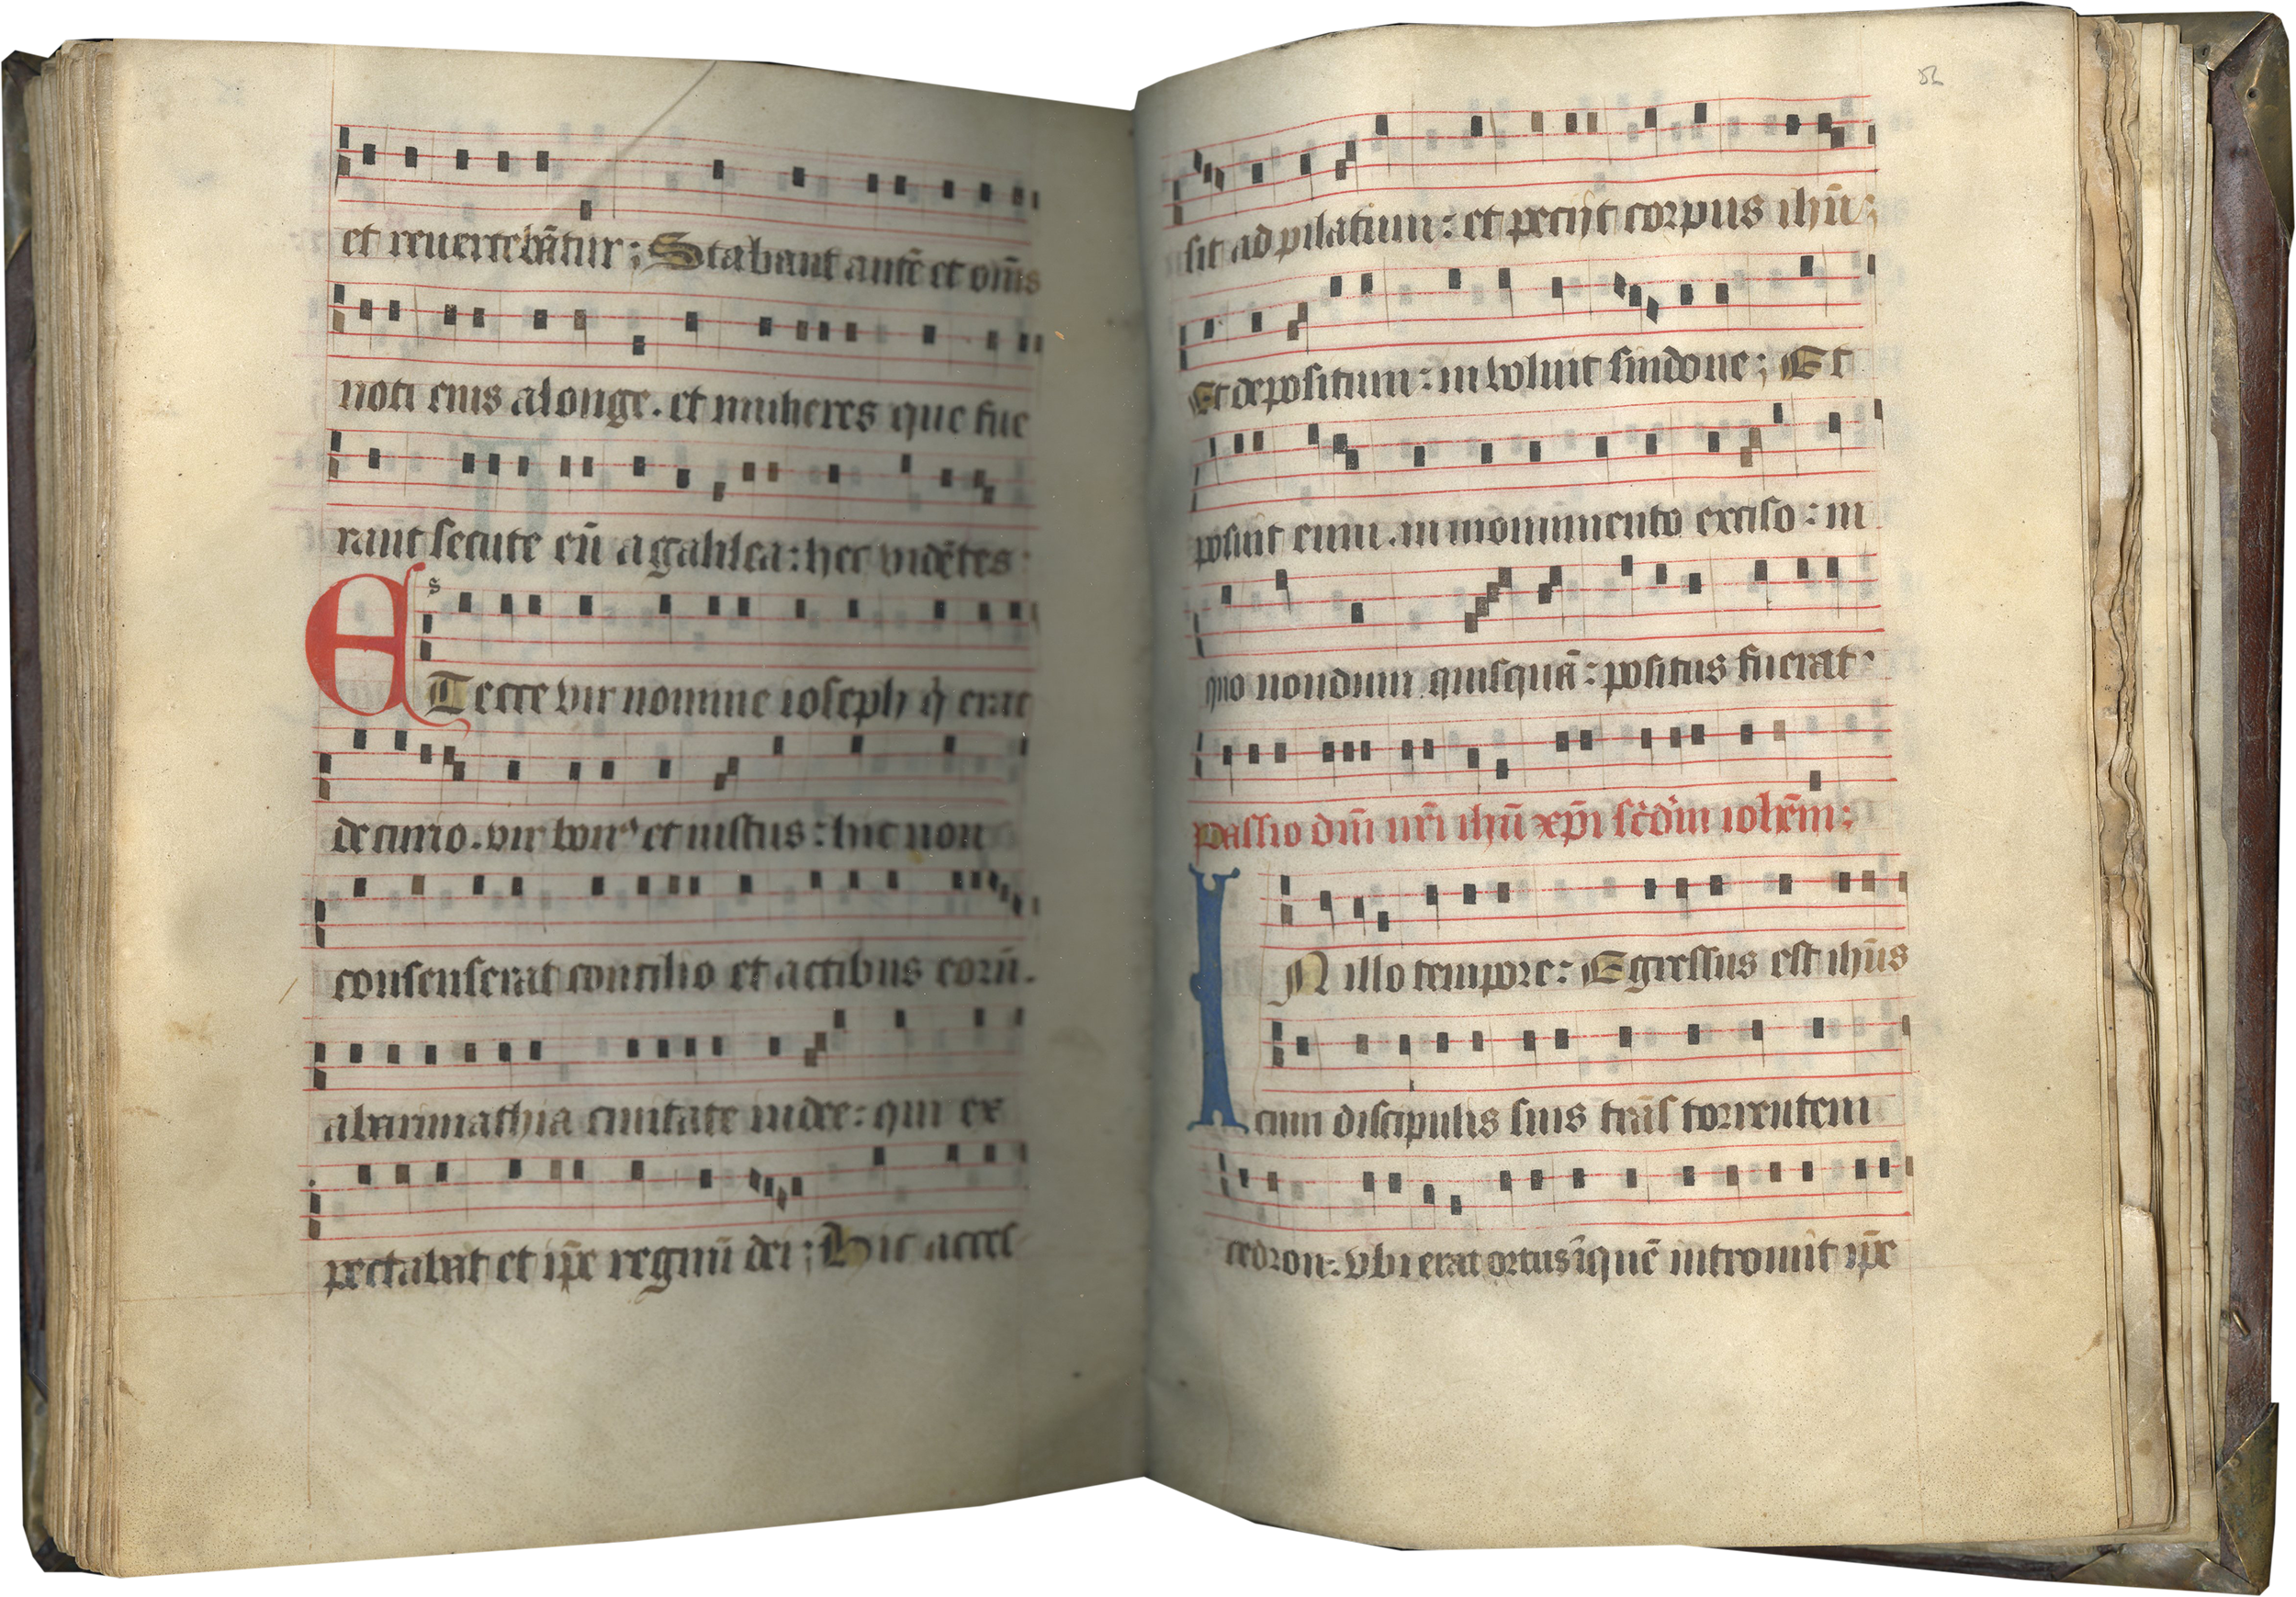 et reuertebãtur ; Stabant autẽ et om̃s
noti eius alonge . et mulieres que fue
rant secute eũ a galilea : hec vidẽtes
ET ecce vir nomine ioseph q̇ erat
decurio . vir bonꝰ et iustus : hic non
consenserat consilio et actibus eorũ .
abarimathia ciuitate iudee : qui ex
pectabat et ip̃e regnũ dei ; Hic acces
52
sit ad pilatum : et pecijt corpus ihũ ;
Et depositum : inuoluit sindone ; Et
posuit eum . in monumento exciso : in
quo nondum quisquã : positus fuerat .
Passio dñi nr̃i ihũ xp̃i scd̃m ioh̃em ;
IN illo tempore : Egressus est ihũs
cum discipulis suis trãs torrentem
cedron : vbi erat ortus ĩ quẽ introiuit ip̃e